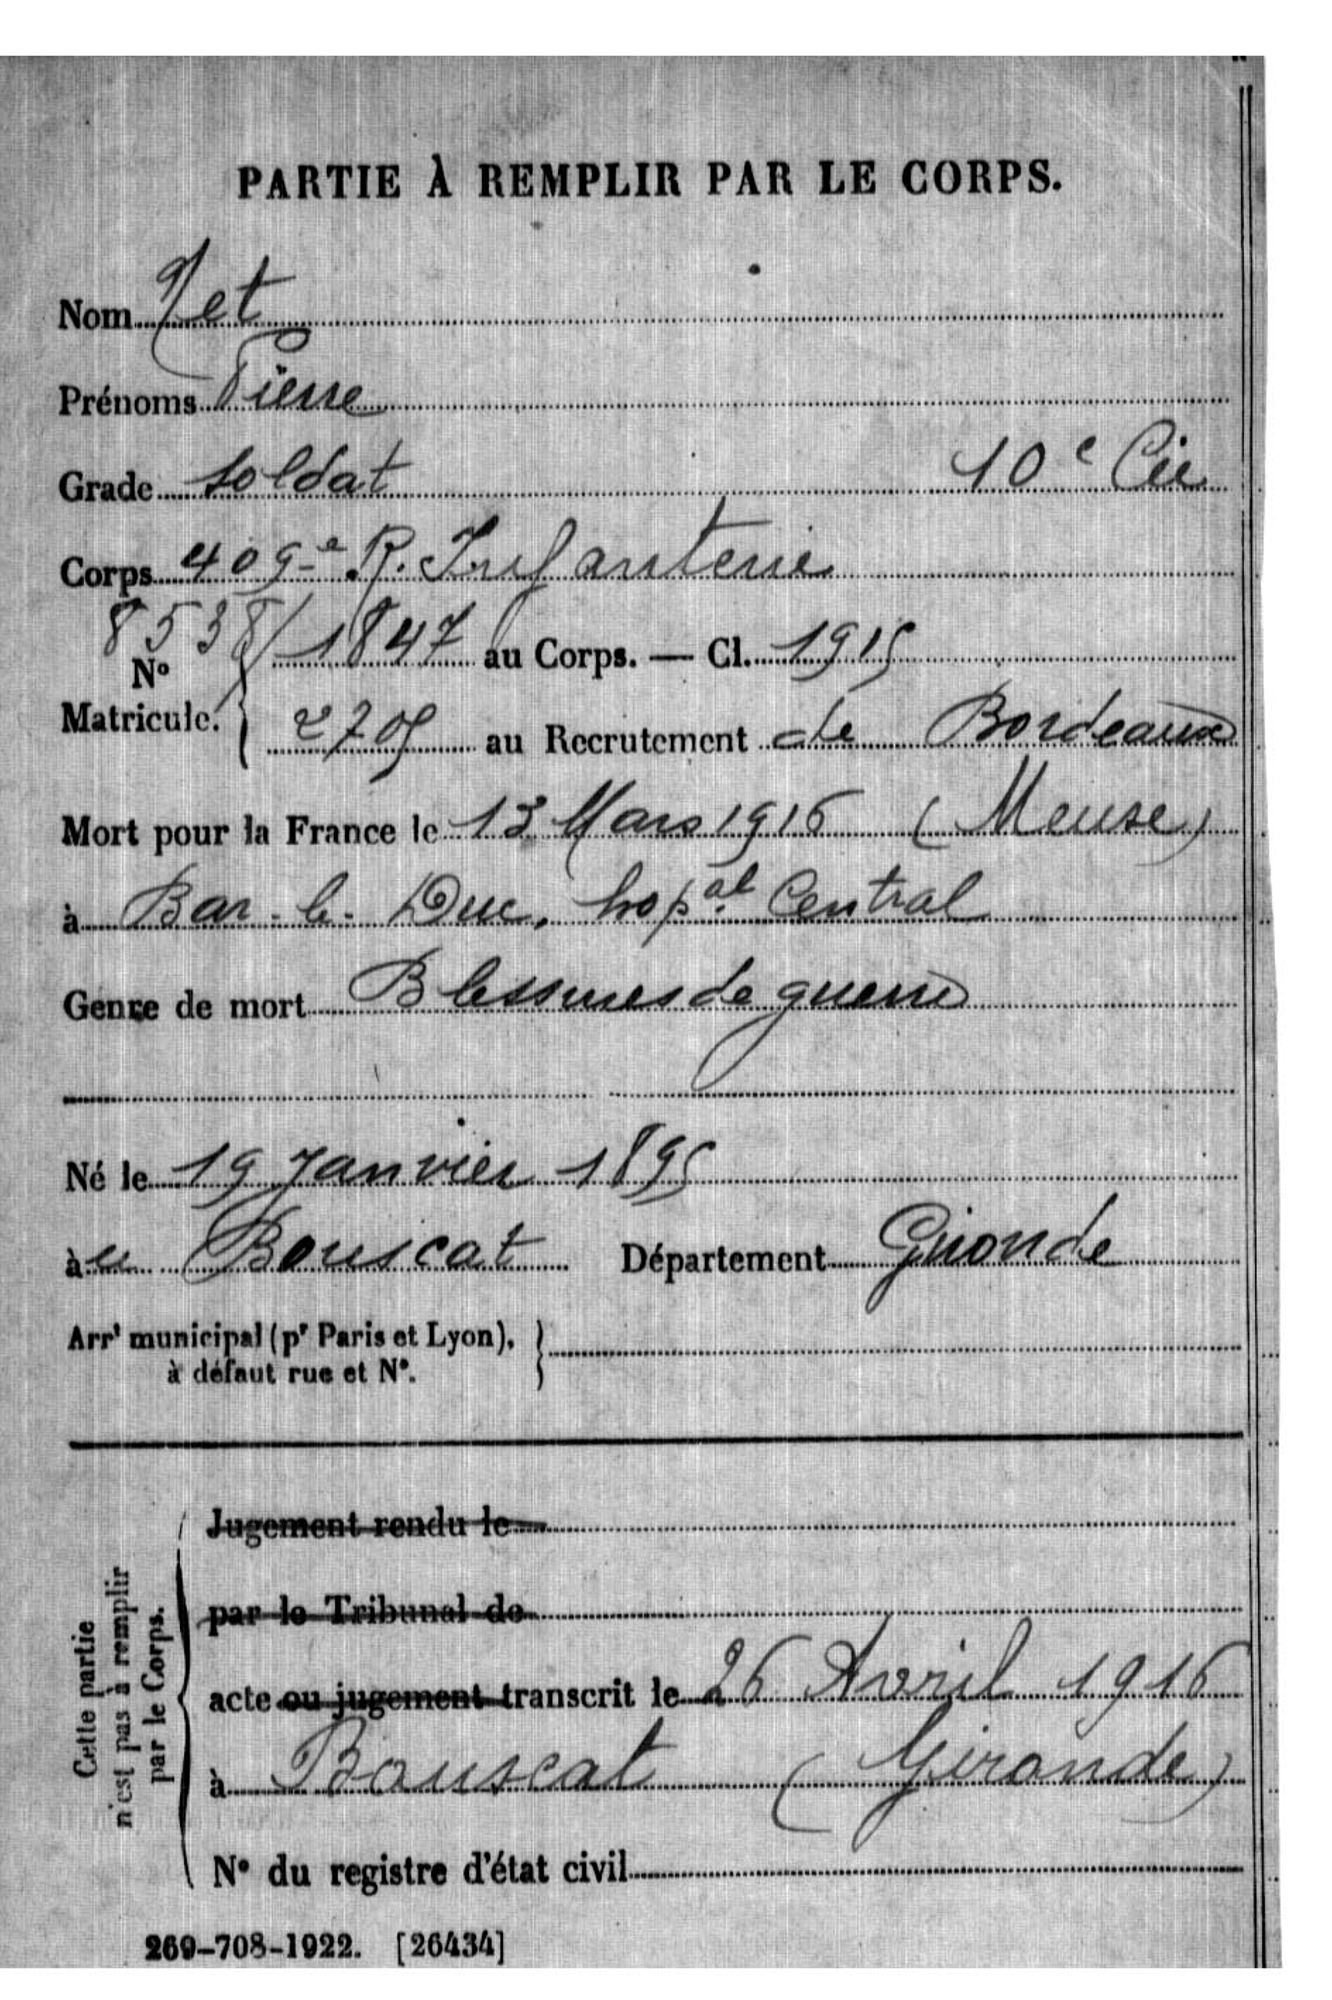 PARTIE À REMPLIR PAR LE CORPS.
Nom Net
Prénoms Pierre
Grade soldat 10e Cie
Corps 409e R. Infanterie
8538/1847 au Corps. — Cl. 1915
No
Matricule. 2705 au Recrutement de Bordeaux
Mort pour la France le 13 Mars 1916 (Meuse)
à Bar-le-Duc, hopal Central
Genre de mort Blessures de guerre
Né le 19 Janvier 1895
à Bouscat Département Gironde
Arrt municipal (pr Paris et Lyon),
à défaut rue et No.
Cette partie
n'est pas à remplir
par le Corps.
Jugement rendu le
par le Tribunal de
acte ou jugement transcrit le 26 Avril 1916
à Bouscat (Gironde)
No du registre d'état civil
269-708-1922. [26434]